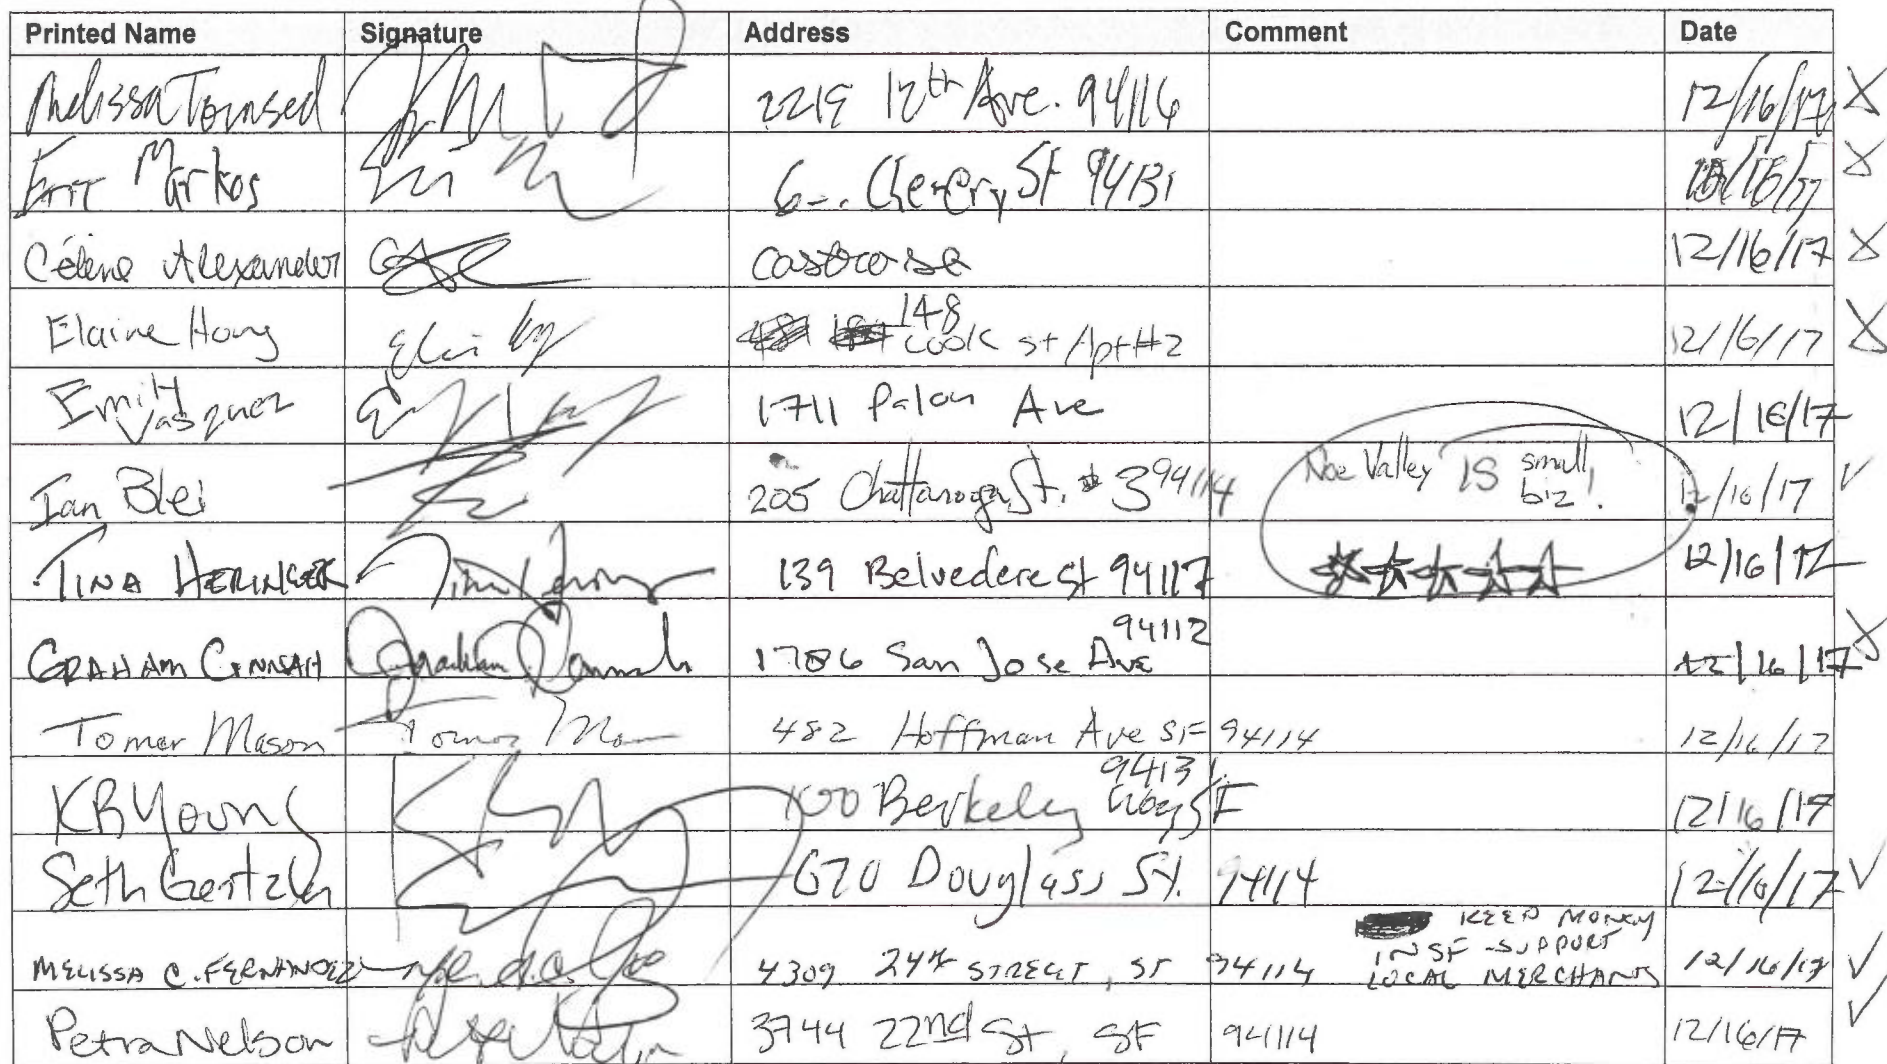 Printed Name Signature Address Comment Date
Melissa Townsed 2219 12th Ave. 94116 12/16/17
Markos St 94131
Céline Alexander 12/16/17
Elaine Hong 148 Cook st Apt #2 12/16/17
Emil Vasquez 1711 Ave 12/16/17
Ian Blei 205 Chattanooga St. #3 94114 Noe Valley IS small biz! 12/16/17
TINA HERINGER 139 Belvedere St 94117 12/16/17
GRAHAM CANNAH Graham Cannah 1786 San Jose Ave 94112 12/16/17
Tomer Mason 482 Hoffman Ave SF 94114 12/16/17
KB Young 100 Berkeley Way SF 94131 12/16/17
Seth 670 Douglass St. 94114 12/16/17
MELISSA C. FERNANDEZ 4309 24th STREET, SF 94114 KEEP MONEY IN SF - SUPPORT LOCAL MERCHANTS 12/16/17
Petra Nelson 3744 22nd St, SF 94114 12/16/17